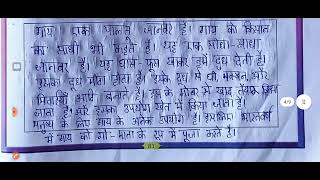 गाय एक पालतू जानवर है। गाय को किसान
का साथी भी कहते हैं। यह एक सीधा-साधा
जानवर है। यह घास-फूस खाकर हमें दूध देती है।
इसका दूध मीठा होता है। इसके दूध से घी, मक्खन, और
मिठाइयाँ आदि बनाते हैं। गाय के गोबर से खाद तैयार किया
जाता है। और इसका उपयोग खेत में किया जाता है।
मनुष्य के लिए गाय के अनेक उपयोग हैं। इसलिए भारतवर्ष
में गाय को गौ-माता के रूप में पूजा करते हैं।
4/9